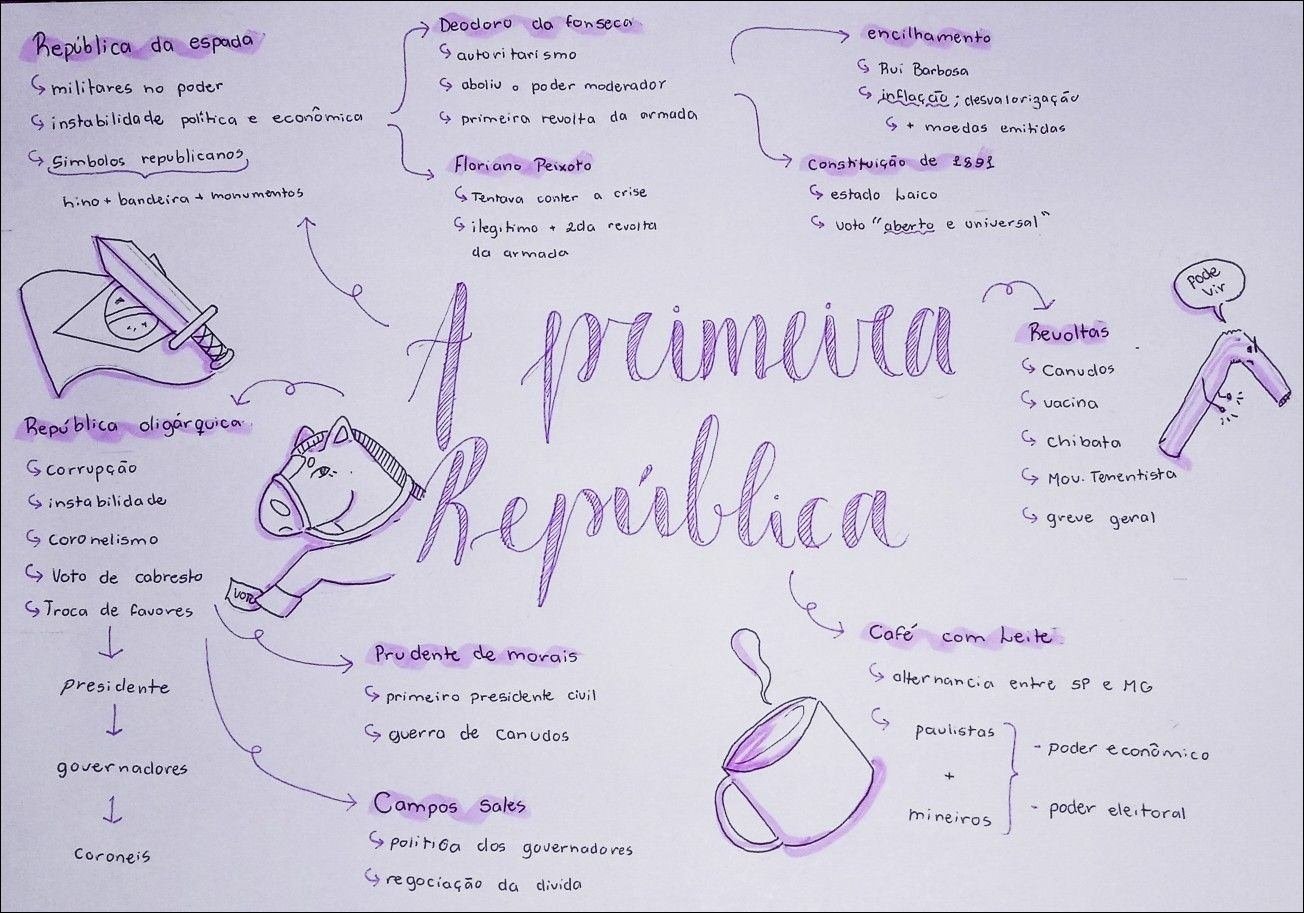 República da espada
militares no poder
instabilidade política e econômica
Simbolos republicanos
hino + bandeira + monumentos
Deodoro da fonseca
autoritarismo
aboliu o poder moderador
primeira revolta da armada
Floriano Peixoto
Tentava conter a crise
ilegitimo + 2da revolta
da armada
encilhamento
Rui Barbosa
inflação; desvalorização
+ moedas emitidas
Constituição de 1891
estado Laico
voto "aberto e universal"
A primeira
República
pode
vir
Revoltas
Canudos
vacina
chibata
Mov. Tementista
greve geral
República oligárquica
corrupção
instabilidade
coronelismo
Voto de cabresto
Troca de favores
presidente
governadores
coroneis
VOTO
Prudente de morais
primeiro presidente civil
guerra de canudos
Campos Sales
politica dos governadores
regociação da divida
Café com Leite
alternancia entre SP e MG
paulistas
+
mineiros
- poder econômico
- poder eleitoral